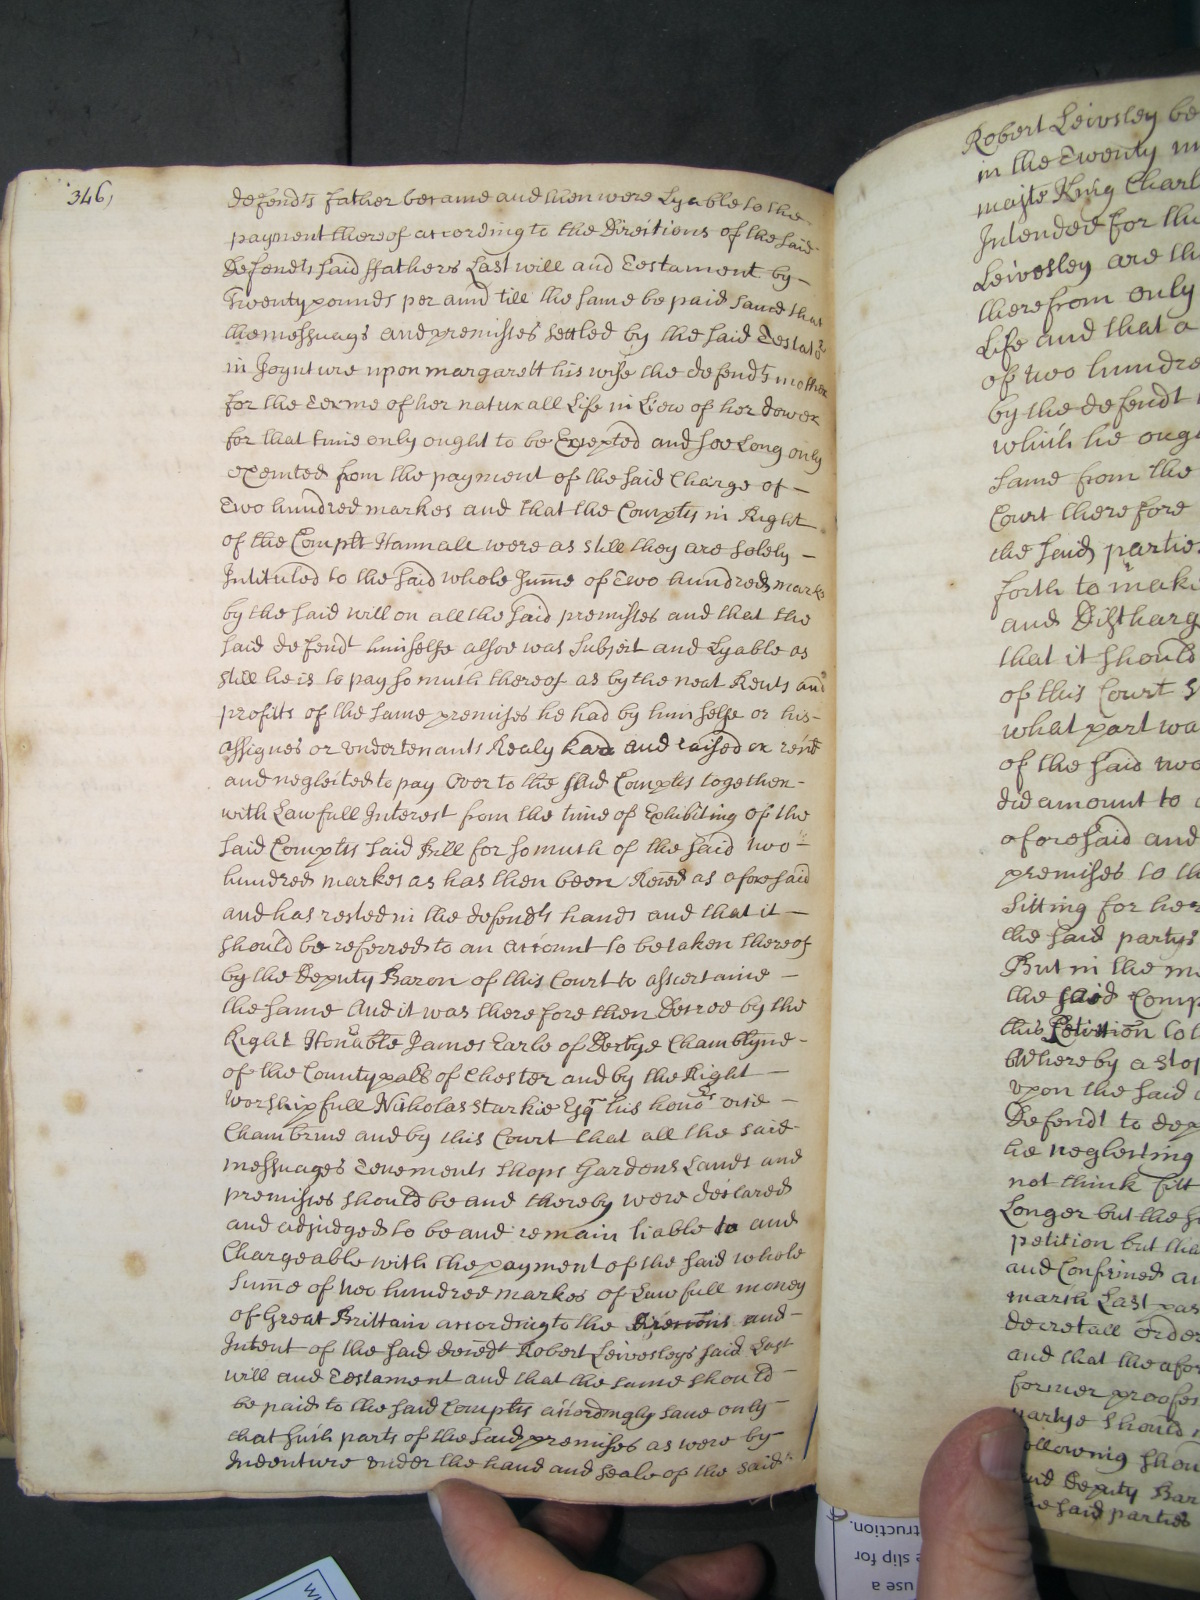 346
defendts father became and then were Lyable to the
payment thereof according to the Directions of the said
Defendts said ffathers Last will and Testament by
Twenty pounds per annũ till the same be paid saud that
the messuags and premisses settled by the said Testator
in Joynture upon margarett his wife the defendts mother
for the Terme of her naturall Life in Liew of her dower
for that time only ought to be Excepted and soe Long only
exemted from the payment of the said Charge of
Two hundred markes and that the Complts in Right
of the Complt Hannah were as still they are solely
Intituled to the said whole Sum̃e of Two hundred marks
by the said will on all the said premisses and that the
said defendt himselfe alsoe was Subject and Lyable as
still he is to pay so much thereof as by the neat Rents and
profitts of the same premises he had by himselfe or his
assignes or undertenants Realy had and raised or
and neglected to pay Over to the said Complts together
with Lawfull Interest from the time of Exhibiting of the
said Complts said Bill for so much of the said two
hundred markes as has then been Rec̃ed as aforesaid
and has rested in the defendts hands and that it
should be referred to an Account to be taken thereof
by the Deputy Baron of this Court to assertaine
the same And it was therefore then Decree by the
Right Honoable James Earle of Derbye Chamblyne
of the County palt of Chester and by the Right
Worshipfull Nicholas Starkie Esqr his honors vice
Chambrine and by this Court that all the said
messuages Tenements Shops Gardens Lands and
premisses should be and thereby were declared
and adjudged to be and remain liable to and
Chargeable with the payment of the said whole
Sum̃e of two hundred markes of Lawfull money
of Great Brittain according to the and
Intent of the said deced̃t Robert Leivesleys said Last
will and Testament and that the same should
be paid to the said Complts accordingly saue only
that such parts of the said premisses as were by
Indenture under the hand and seale of the said
Robert Leivsley
in the Twenty
majte King Charl
Intended for the
Leivesley are th
therefrom only
Life and that a
of two hundre
by the defendt
which he ough
same from the
Court therefore
the said partie
forth to make
and Discharg
that it should
of this Court
what part wa
of the said two
did amount to
aforesaid and
premises to th
sitting for her
the said partys
But in the me
the said Comp
this Petition to
Whereby a stop
upon the said
Defendt to dep
he neglecting
not think fitt
Longer but the
petition but tha
and Confirmed an
march Last pas
decretall order
and that the afor
former proofes
partye should
ollowing shou
Deputy Bar
said parties
use a
slip for
truction.